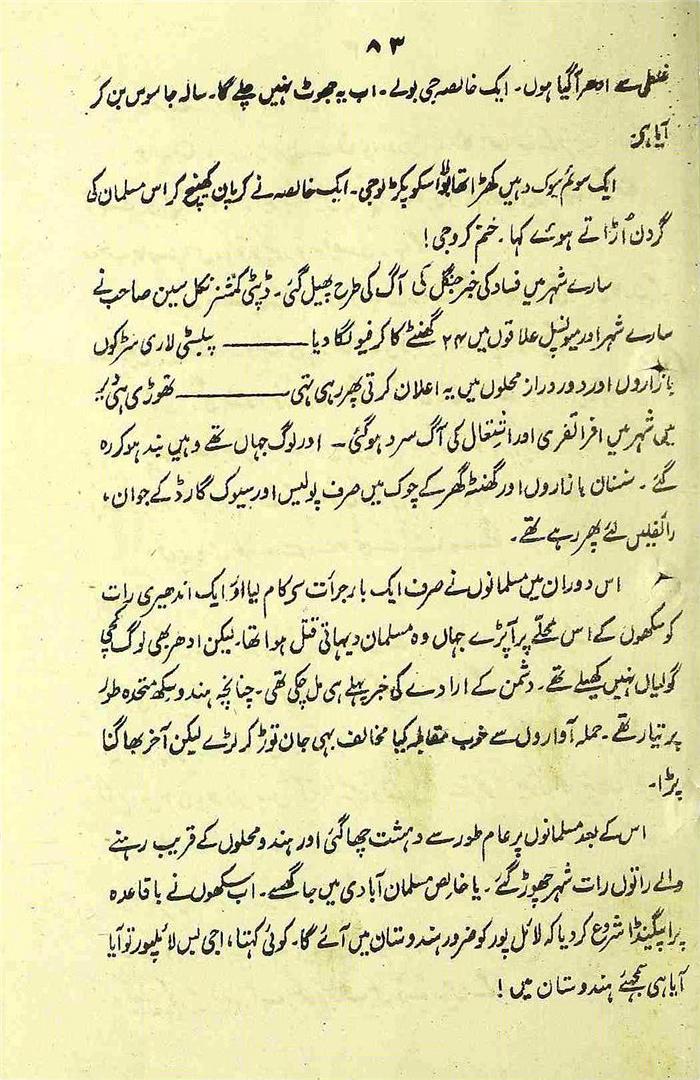 ۸۳
غلطی سے ادھر آ گیا ہوں۔ ایک خالصہ جی بولے۔ اب یہ جھوٹ نہیں چلے گا۔ سالہ جاسوس بن کر
آیا ہی۔
ایک سوئم سیوک وہیں کھڑا تھا بولا اسکو پکڑ لو جی۔ ایک خالصہ نے کرپان کھینچ کر اس مسلمان کی
گردن اُڑاتے ہوئے کہا۔ ختم کرو جی!
سارے شہر میں فساد کی خبر جنگل کی آگ کی طرح پھیل گئی۔ ڈپٹی کمشنر نکل سین صاحب نے
سارے شہر اور میونسپل علاقوں میں ۲۴ گھنٹے کا کرفیو لگا دیا ——— پبلسٹی لاری سڑکوں
بازاروں اور دور دراز محلوں میں یہ اعلان کرتی پھر رہی تہی ——— تھوڑی ہی دیر
میں شہر میں افراتفری اور اشتعال کی آگ سرد ہو گئی – اور لوگ جہاں تھے وہیں بند ہو کر رہ
گئے۔ سنسان بازاروں اور گھنٹہ گھر کے چوک میں صرف پولیس اور سیوک گارڈ کے جوان،
رائفلیں لئے پھر رہے تھے۔
اس دوران میں مسلمانوں نے صرف ایک بار جرأت سے کام لیا اور ایک اندھیری رات
کو سکھوں کے اس محلّے پر آ پڑے جہاں وہ مسلمان دیہاتی قتل ہوا تھا۔ لیکن ادھر بھی لوگ کچی
گولیاں نہیں کھیلے تھے۔ دشمن کے ارادے کی خبر پہلے ہی مل چکی تھی۔ چنانچہ ہندو سکھ متحدہ طور
پر تیار تھے۔ حملہ آواروں سے خوب مقابلہ کیا مخالف بہی جان توڑ کر لڑے لیکن آخر بھاگنا
پڑا۔
اس کے بعد مسلمانوں پر عام طور سے دہشت چھا گئی اور ہندو محلوں کے قریب رہنے
والے راتوں رات شہر چھوڑ گئے۔ یا خالص مسلمان آبادی میں جا گھسے۔ اب سکھوں نے باقاعدہ
پراپیگینڈا شروع کر دیا کہ لائل پور کو ضرور ہندوستان میں آئے گا۔ کوئی کہتا، اجی بس لائلپور تو آیا
آیا ہی سمجھئے ہندوستان میں!